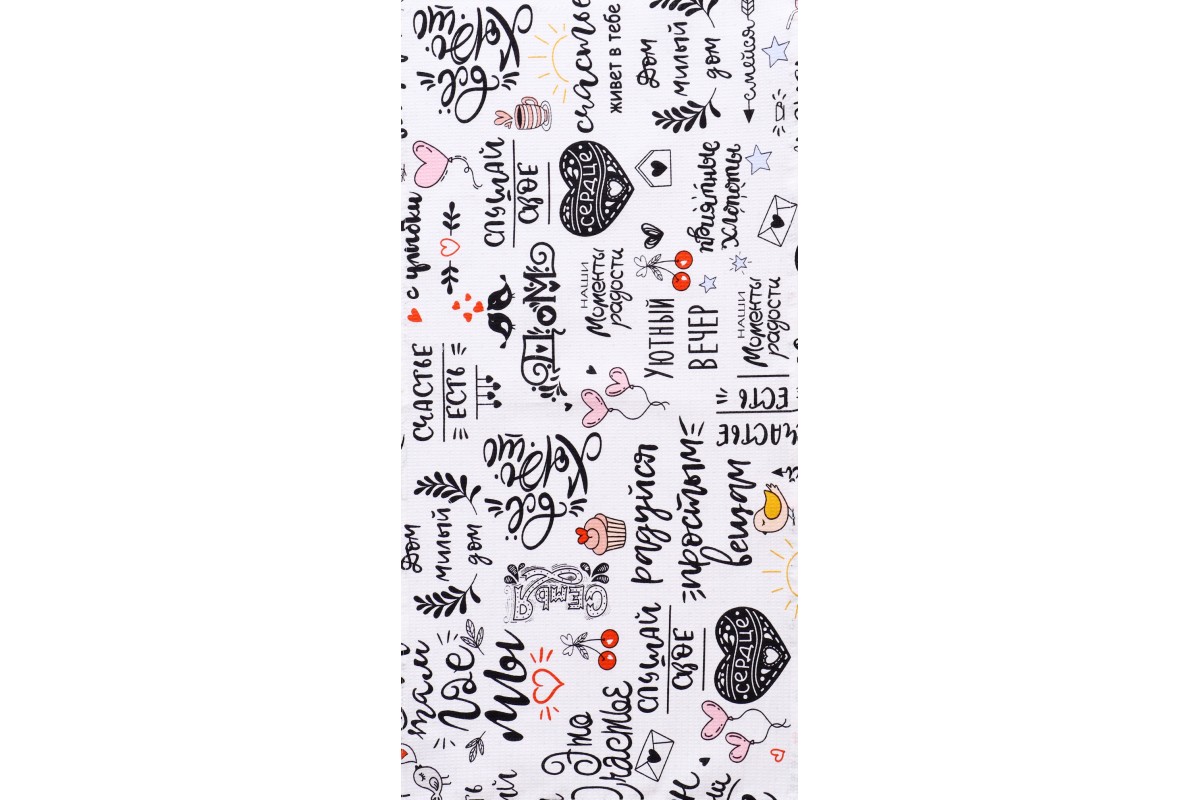 счастье
живет в тебе
Дом
милый
дом
смейся
слушай
своё
сердце
приятные
хлопоты
с улыбки
Дом
НАШИ
Моменты
радости
УЮТНЫЙ
ВЕЧЕР
НАШИ
Моменты
радости
СЧАСТЬЕ
ЕСТЬ
СЧАСТЬЕ
ЕСТЬ
Дом
милый
дом
радуйся
простым
вещам
там
где
мы
Это
счастье
слушай
своё
сердце